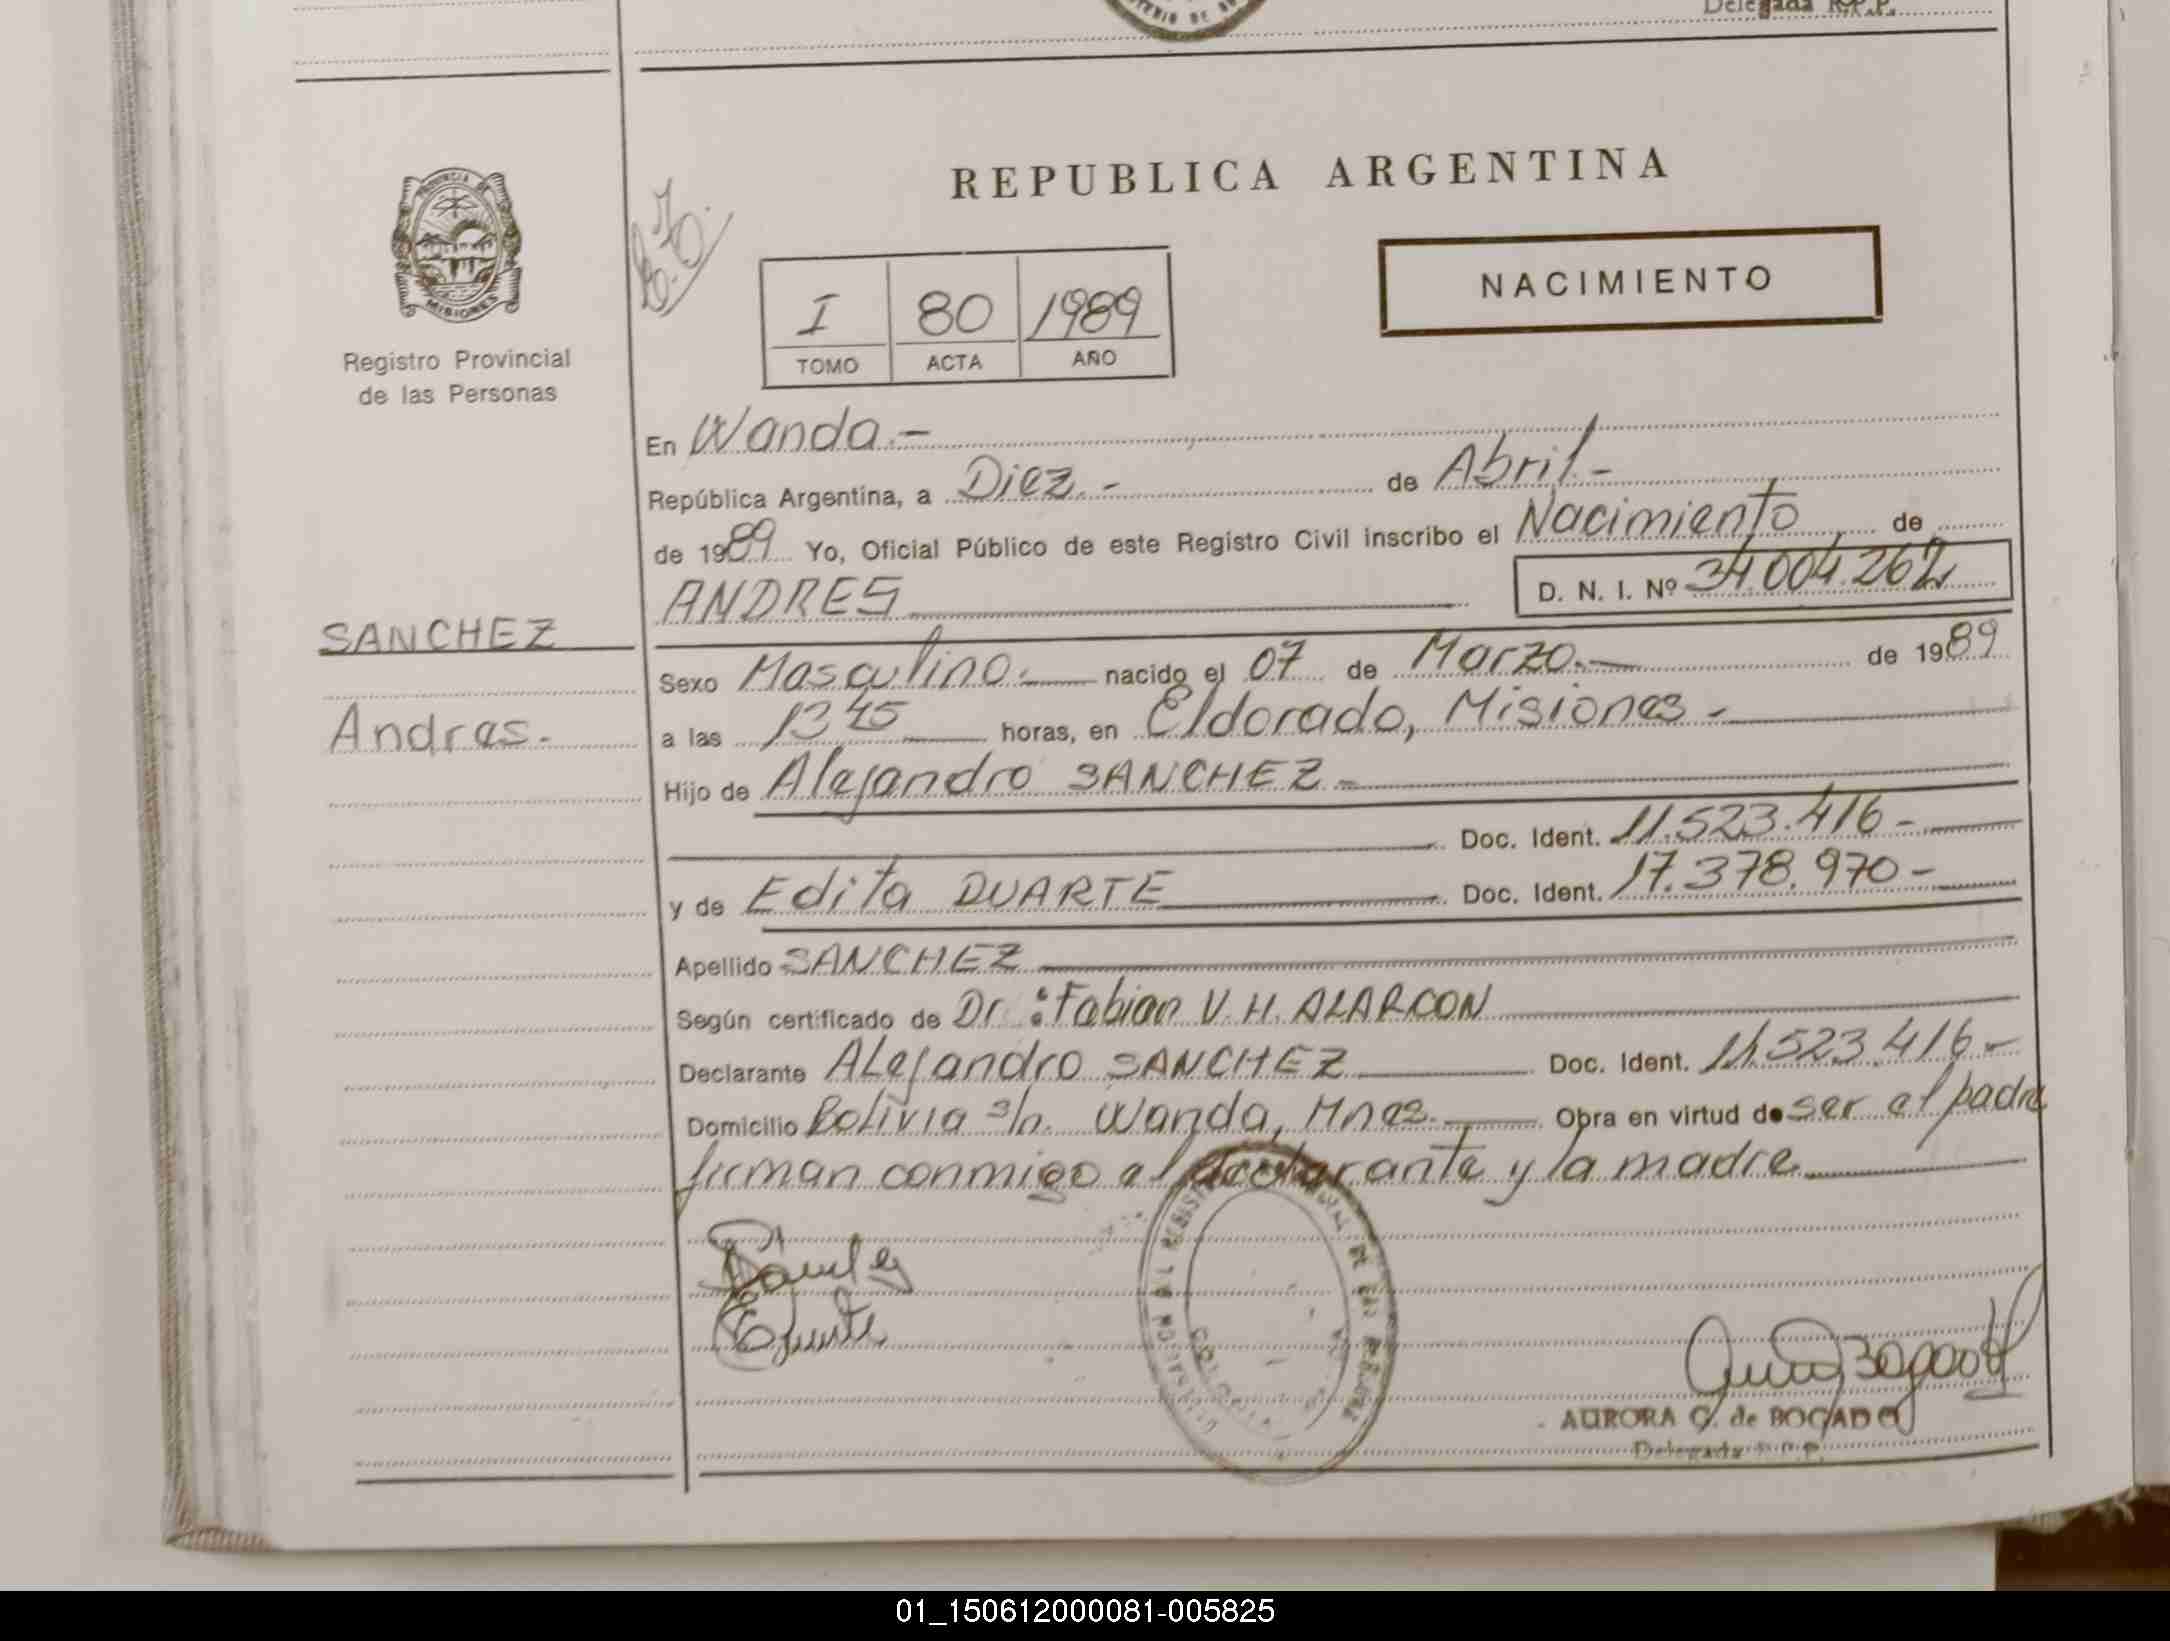 Delegada R.P.P.
PROVINCIA DE
MISIONES
Registro Provincial
de las Personas
REPUBLICA ARGENTINA
NACIMIENTO
I 80 1989
TOMO ACTA AÑO
En Wanda.-
República Argentina, a Diez.- de Abril.-
de 1989 Yo, Oficial Público de este Registro Civil inscribo el Nacimiento de
ANDRES D. N. I. Nº 34.004.262
SANCHEZ
Andres.-
Sexo Masculino.- nacido el 07 de Marzo.- de 1989
a las 13 45 horas, en Eldorado, Misiones.-
Hijo de Alejandro SANCHEZ.-
Doc. Ident. 11.523.416-
y de Edita DUARTE Doc. Ident. 17.378.970-
Apellido SANCHEZ
Según certificado de Dr.: Fabian V. H. ALARCON
Declarante ALejandro SANCHEZ Doc. Ident. 11.523.416-
Domicilio Bolivia s/n. Wanda, Mnes. Obra en virtud de ser el padre
firman conmigo el declarante y la madre.
AURORA G. de BOGADO
Delegada R.P.P.
01_150612000081-005825